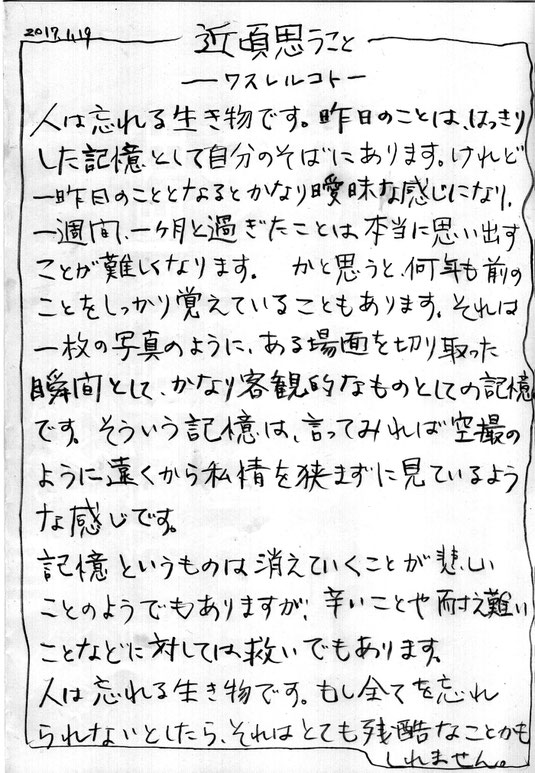 2017.1.19
近頃思うこと
ーワスレルコトー
人は忘れる生き物です。昨日のことは、はっきり
した記憶として自分のそばにあります。けれど
一昨日のこととなるとかなり曖昧な感じになり、
一週間、一ヶ月と過ぎたことは本当に思い出す
ことが難しくなります。 かと思うと、何年も前の
ことをしっかり覚えていることもあります。それは
一枚の写真のように、ある場面を切り取った
瞬間として、かなり客観的なものとしての記憶
です。そういう記憶は、言ってみれば空撮の
ように遠くから私情を狭まずに見ているよう
な感じです。
記憶というものは消えていくことが悲しい
ことのようでもありますが、辛いことや耐え難い
ことなどに対しては救いでもあります。
人は忘れる生き物です。もし全てを忘れ
られないとしたら、それはとても残酷なことかも
しれません。